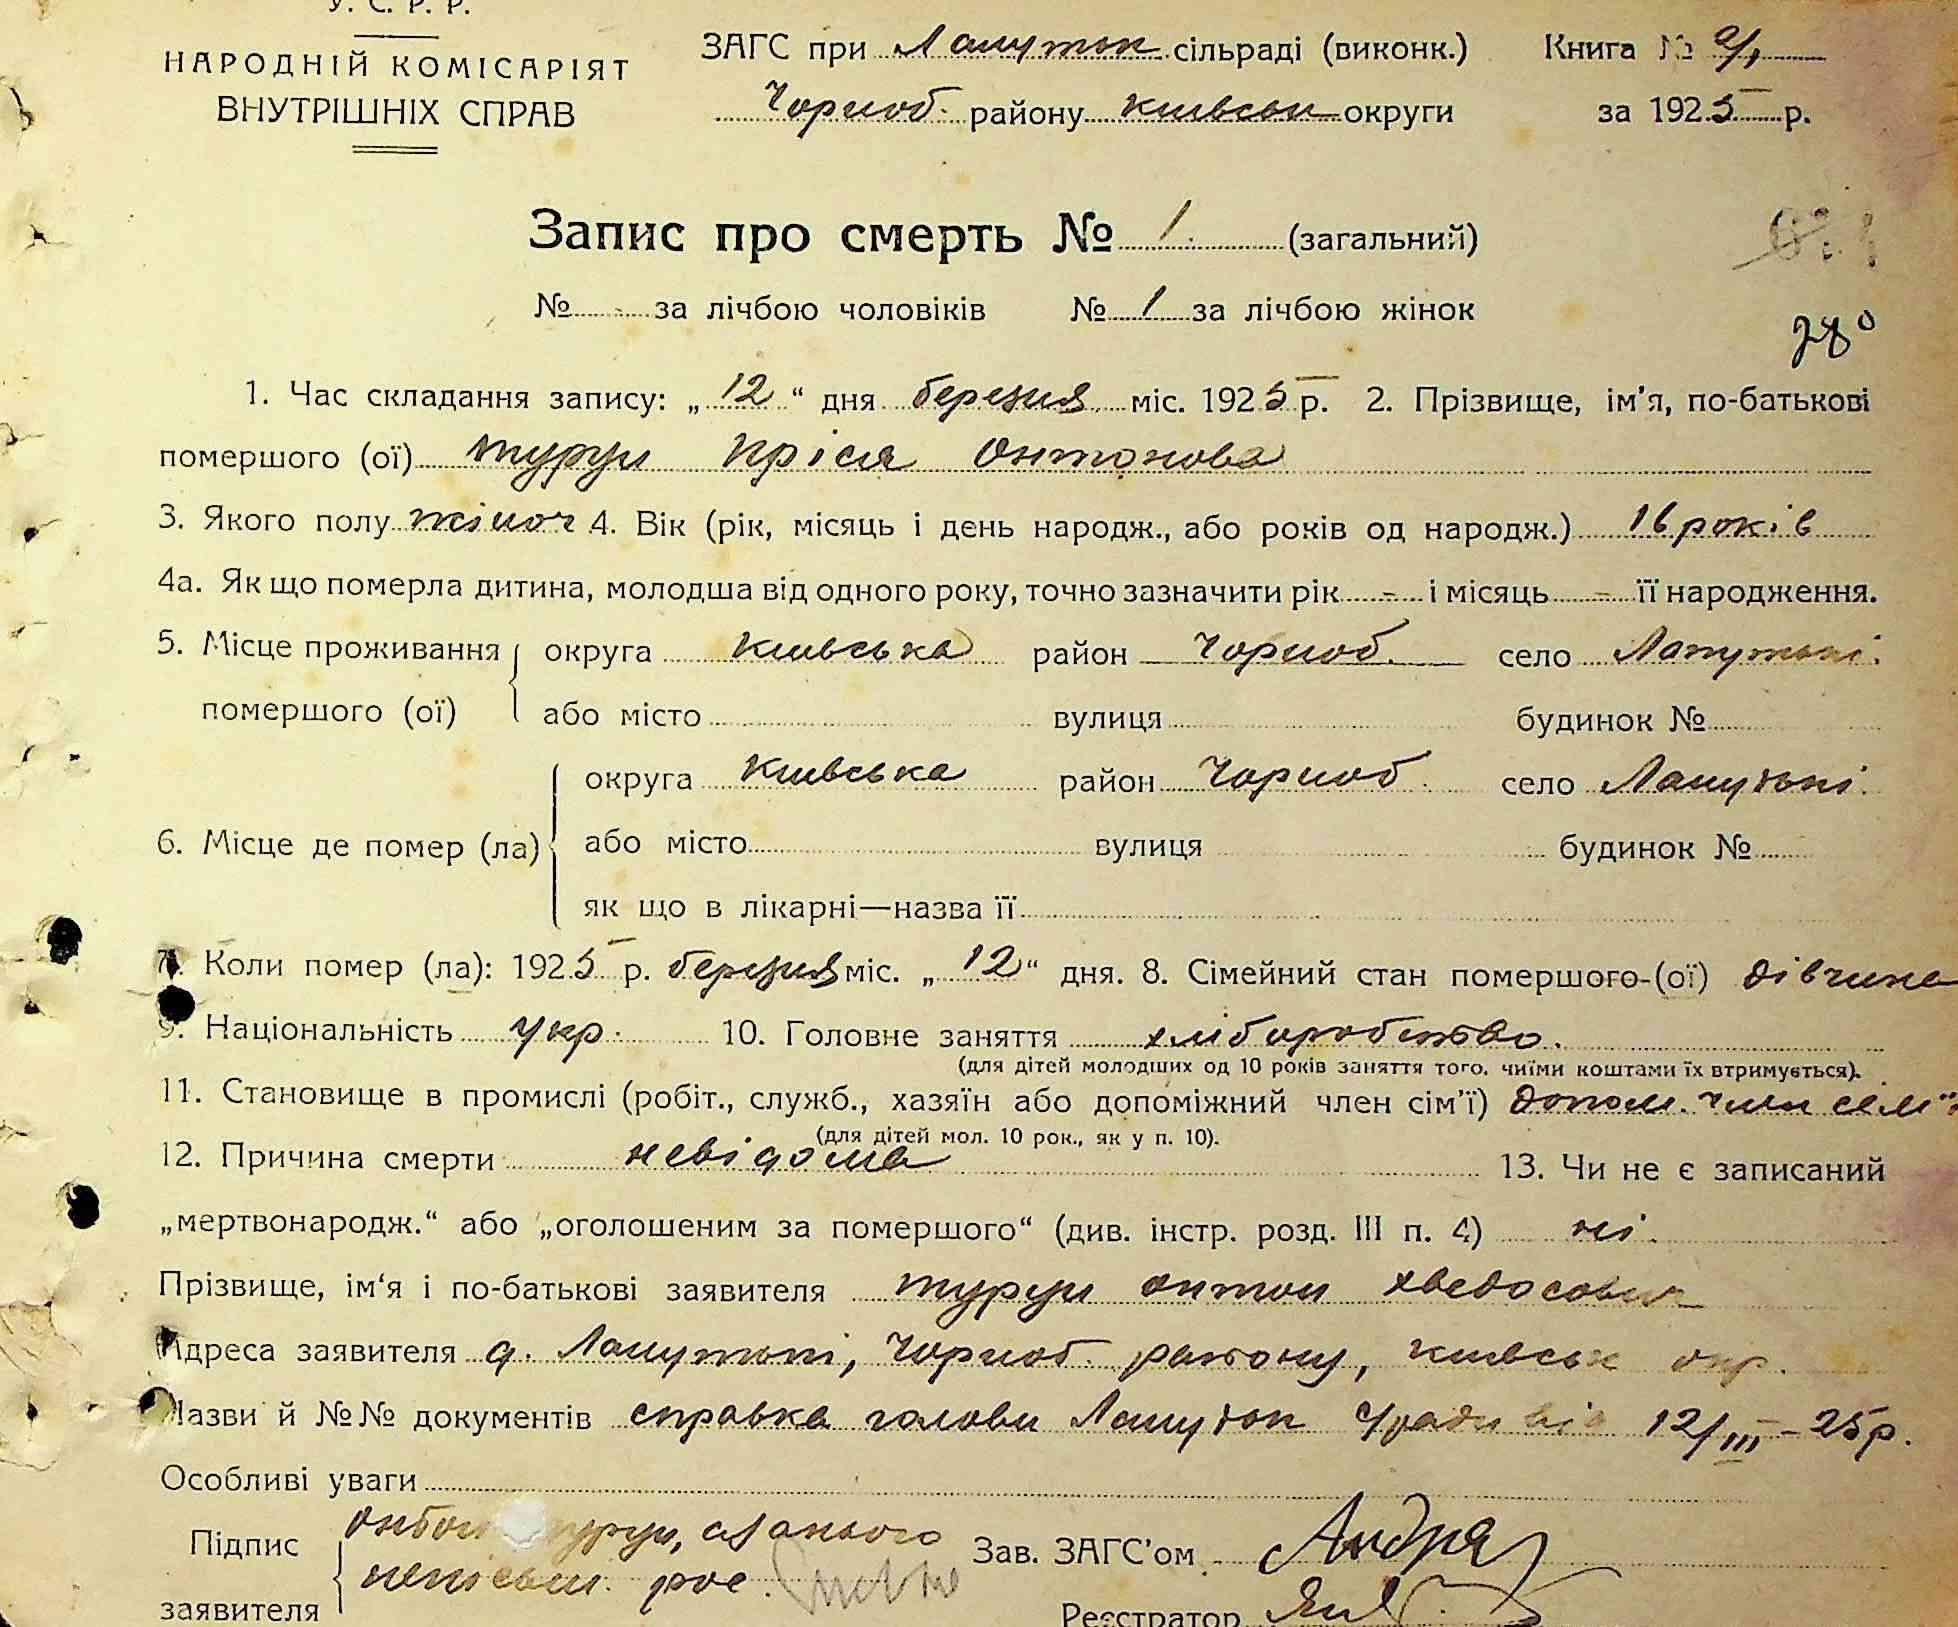 У. С. Р. Р.
НАРОДНІЙ КОМІСАРІЯТ
ВНУТРІШНІХ СПРАВ
ЗАГС при Лапутьк сільраді (виконк.) Книга №
Чорноб. району Київськ округи за 1925 р.
Запис про смерть № 1. (загальний)
№ - за лічбою чоловіків № 1 за лічбою жінок
28
1. Час складання запису: „12“ дня березня міс. 1925 р. 2. Прізвище, ім'я, по-батькові
помершого (ої) Турун Пріся Онтонова
3. Якого полу жіноч 4. Вік (рік, місяць і день народж., або років од народж.) 16 років
4а. Як що померла дитина, молодша від одного року, точно зазначити рік - і місяць - її народження.
5. Місце проживання помершого (ої) округа Київська район Чорноб. село Лапутькі.
або місто вулиця будинок №
6. Місце де помер (ла) округа Київська район Чорноб село Лапутькі.
або місто вулиця будинок №
як що в лікарні—назва її
7. Коли помер (ла): 1925 р. березня міс. „12“ дня. 8. Сімейний стан помершого (ої) дівчина
9. Національність укр. 10. Головне заняття хліборобство.
(для дітей молодших од 10 років заняття того, чиїми коштами їх втримується).
11. Становище в промислі (робіт., служб., хазяїн або допоміжний член сім'ї) допом. член сем
(для дітей мол. 10 рок., як у п. 10).
12. Причина смерти невідома 13. Чи не є записаний
„мертвонародж.“ або „оголошеним за помершого“ (див. інстр. розд. III п. 4) ні.
Прізвище, ім'я і по-батькові заявителя Турун Онтон Хведосович
Адреса заявителя д. Лапутькі, Чорноб. району, Київськ окр.
Назви й №№ документів справка голови Лапутьк с/ради від 12/III-25р.
Особливі уваги
Підпис заявителя Онтон Турун, а за нього
непісьм. рос.
Зав. ЗАГС'ом
Реєстратор